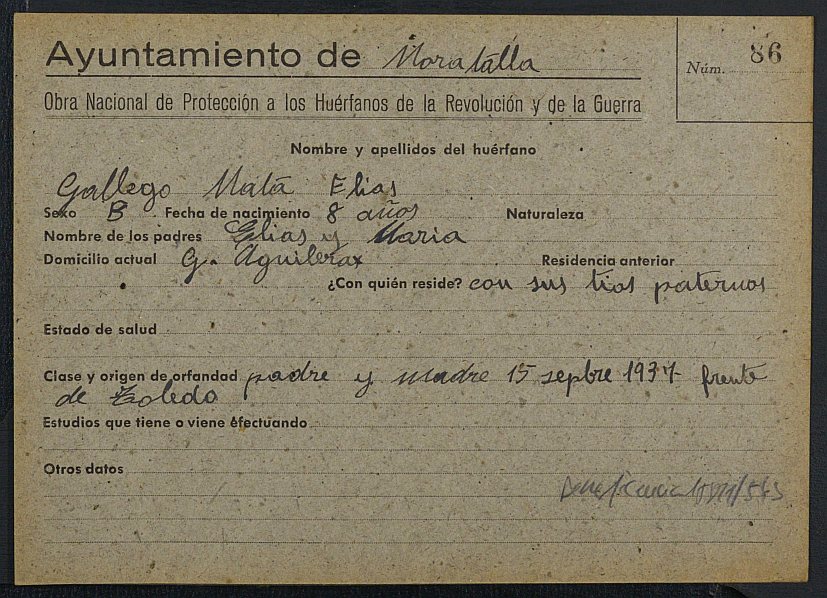 Ayuntamiento de Moratalla
Núm. 86
Obra Nacional de Protección a los Huérfanos de la Revolución y de la Guerra
Nombre y apellidos del huérfano
Gallego Mata Elias
Sexo B Fecha de nacimiento 8 años Naturaleza
Nombre de los padres Elias y Maria
Domicilio actual G. Aguilera Residencia anterior
¿Con quién reside? con sus tios paternos
Estado de salud
Clase y origen de orfandad padre y madre 15 sepbre 1937 frente
de Toledo
Estudios que tiene o viene efectuando
Otros datos